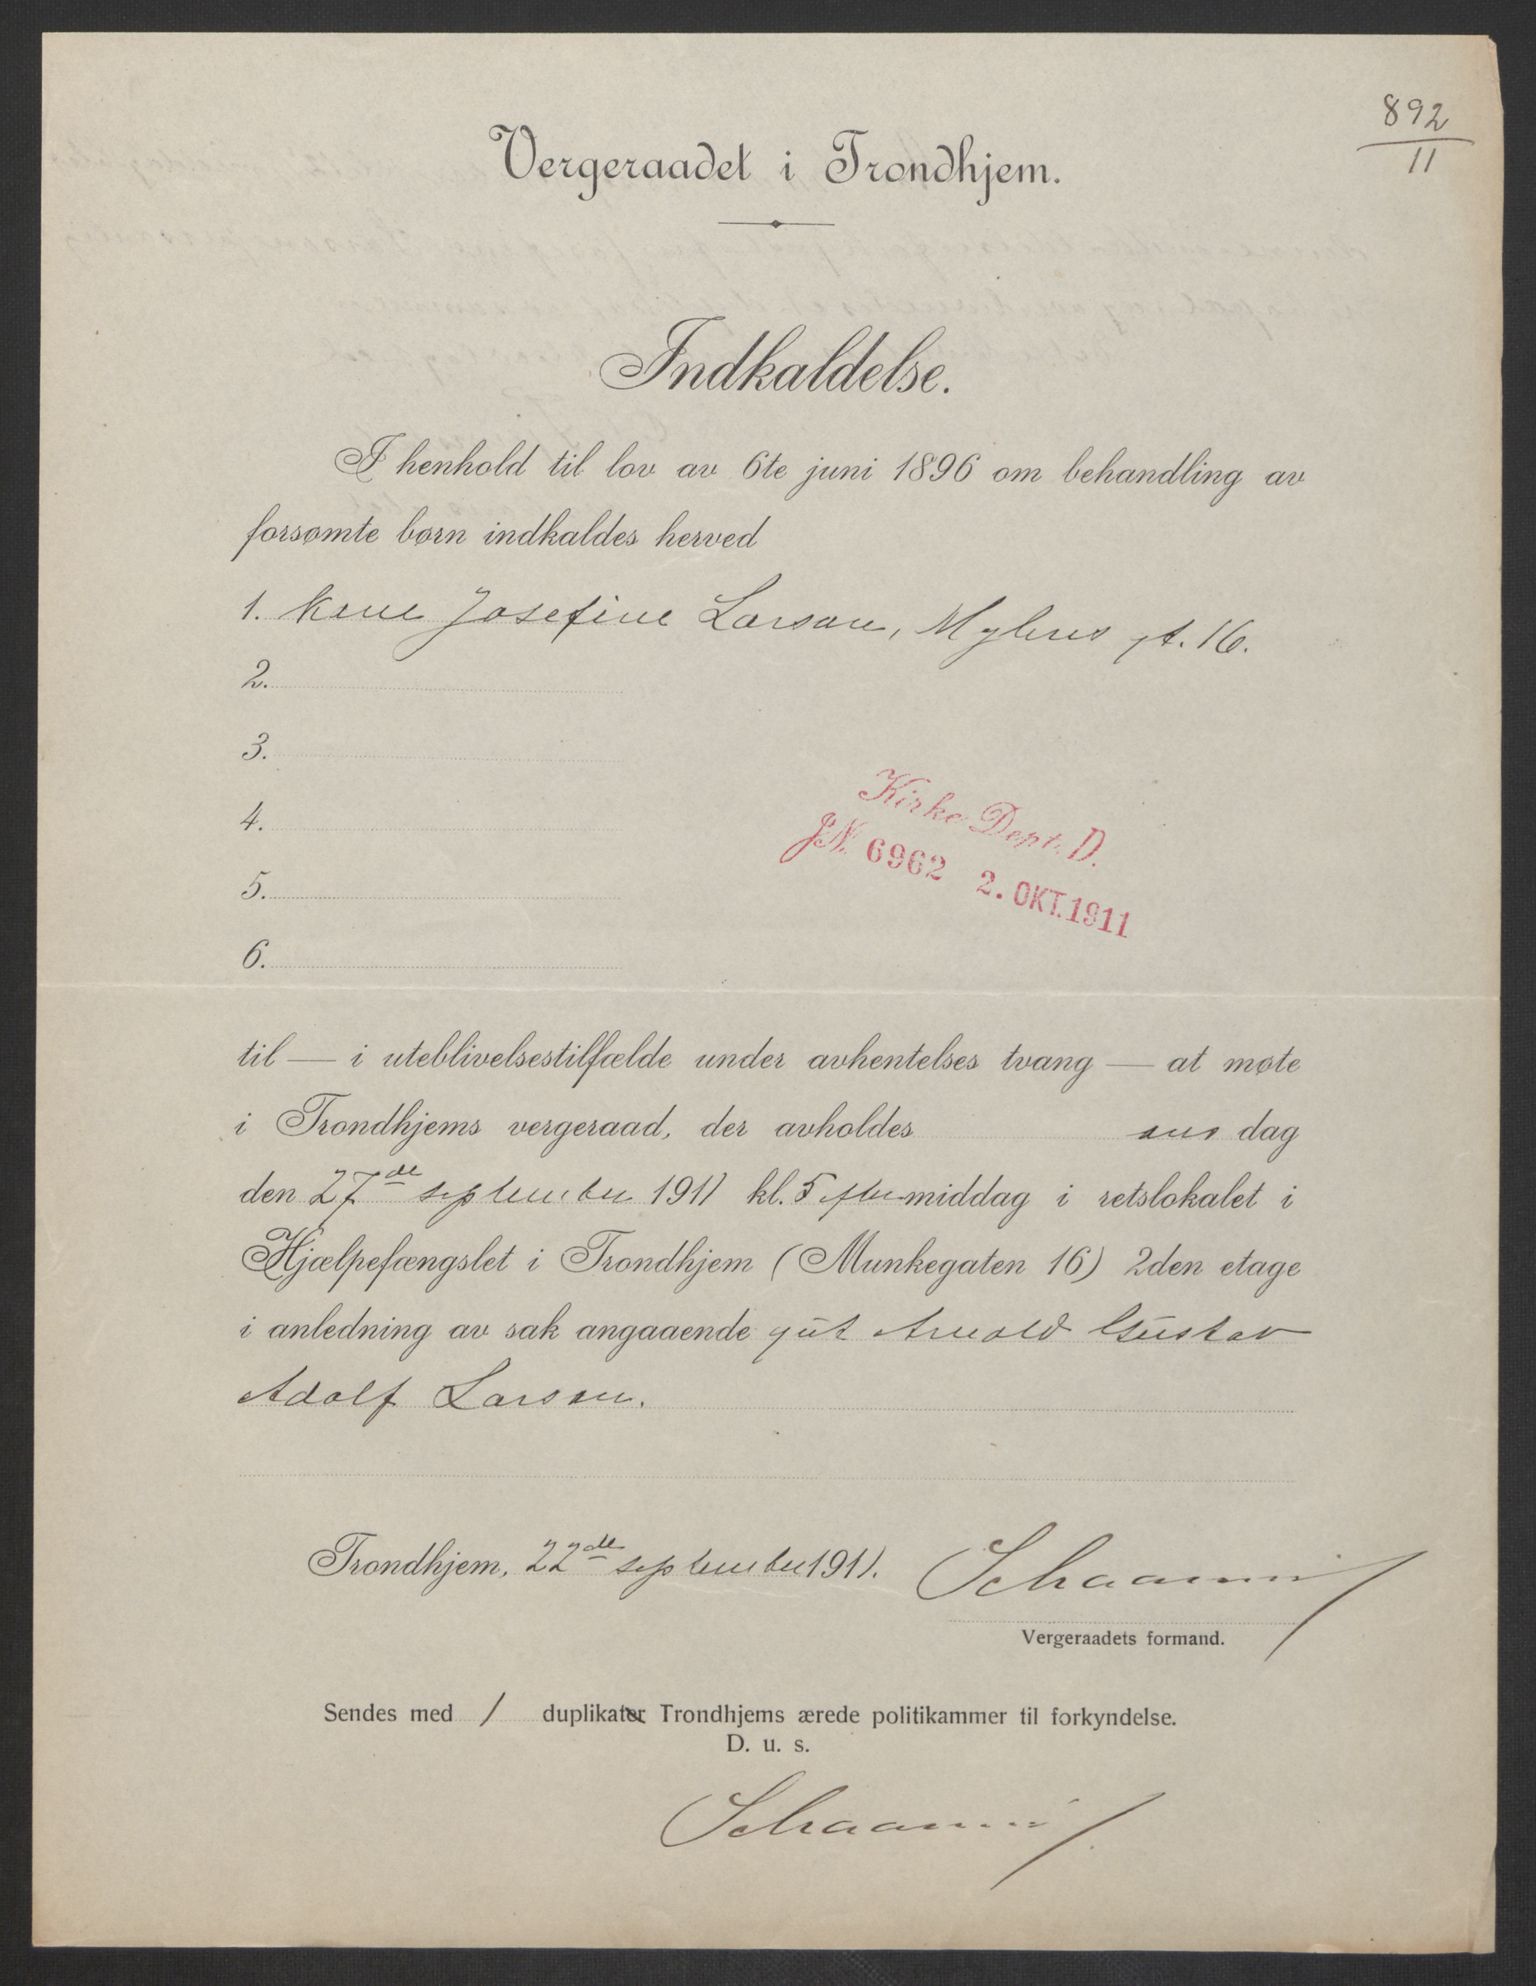 892
11
Vergeraadet i Trondhjem.
Indkaldelse.
I henhold til lov av 6te juni 1896 om behandling av
forsømte børn indkaldes herved
1. Kone Josefine Larsen, Mylnes gt. 16.
2.
3.
4.
5.
6.
Kirke Dept. D.
J.N. 6962 2. OKT. 1911
til — i uteblivelsestilfælde under avhentelses tvang — at møte
i Trondhjems vergeraad, der avholdes ons dag
den 27de september 1911 kl. 5 eftermiddag i retslokalet i
Hjælpefængslet i Trondhjem (Munkegaten 16) 2den etage
i anledning av sak angaaende gut Arnold Gustav
Adolf Larsen.
Trondhjem, 22de september 1911.
Vergeraadets formand.
Sendes med 1 duplikater Trondhjems ærede politikammer til forkyndelse.
D. u. s.